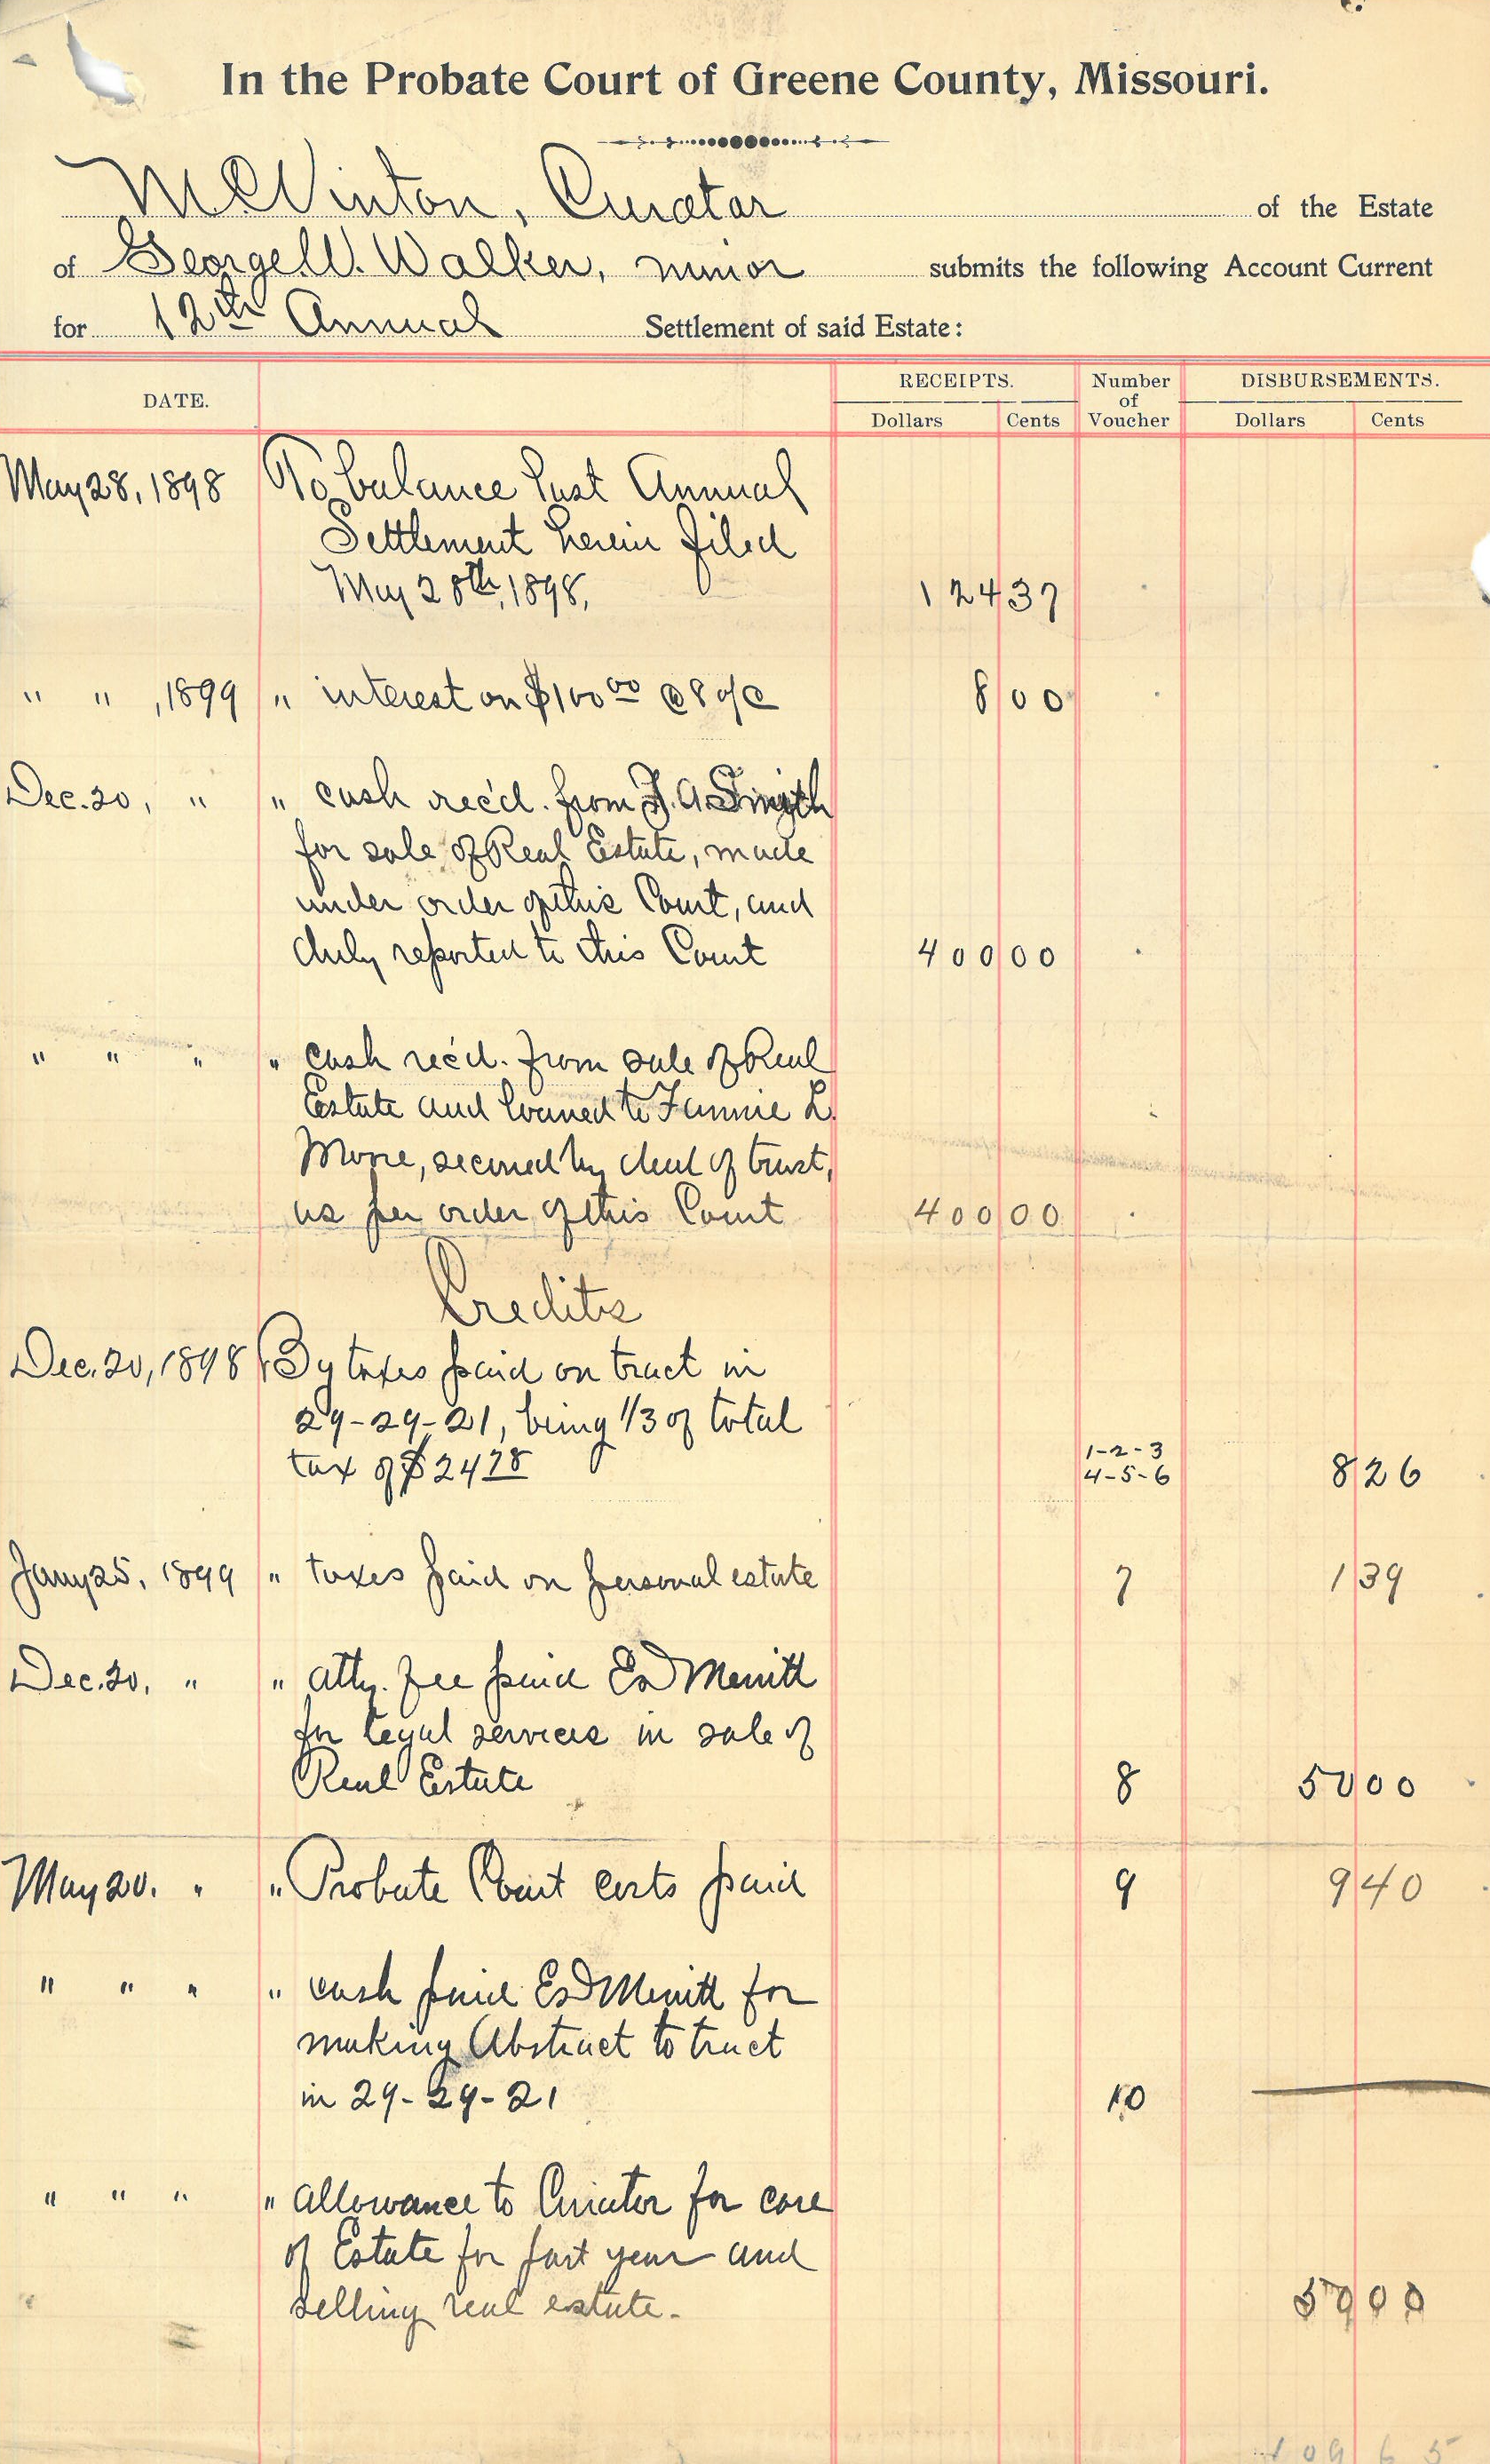 In the Probate Court of Greene County, Missouri.
M C Vinton, Curator of the Estate
of George W. Walker, minor submits the following Account Current
for 12th Annual Settlement of said Estate:
DATE. RECEIPTS. Number of Voucher DISBURSEMENTS.
Dollars Cents Dollars Cents
May 28, 1898 To balance last Annual
Settlement herein filed
May 28th, 1898, 124 37
" " , 1899 " interest on $100 00 @ 8 o/o 8 00
Dec. 20, " " cash rec'd. from J. A. Smith
for sale of Real Estate, made
under order of this Court, and
duly reported to this Court 400 00
" " " " cash rec'd. from sale of Real
Estate and loaned to Fannie L.
Moore, secured by deed of trust,
as per order of this Court 400 00
Credits
Dec. 20, 1898 By taxes paid on tract in
29-29-21, being 1/3 of total
tax of $24 78 1-2-3 4-5-6 8 26
Jany 25, 1899 " taxes paid on personal estate 7 1 39
Dec. 20, " " atty. fee paid Ed Merritt
for legal services in sale of
Real Estate 8 50 00
May 20. " " Probate Court costs paid 9 9 40
" " " " cash paid Ed Merritt for
making Abstract to tract
in 29-29-21 10
" " " " allowance to Curator for care
of Estate for past year and
selling real estate.